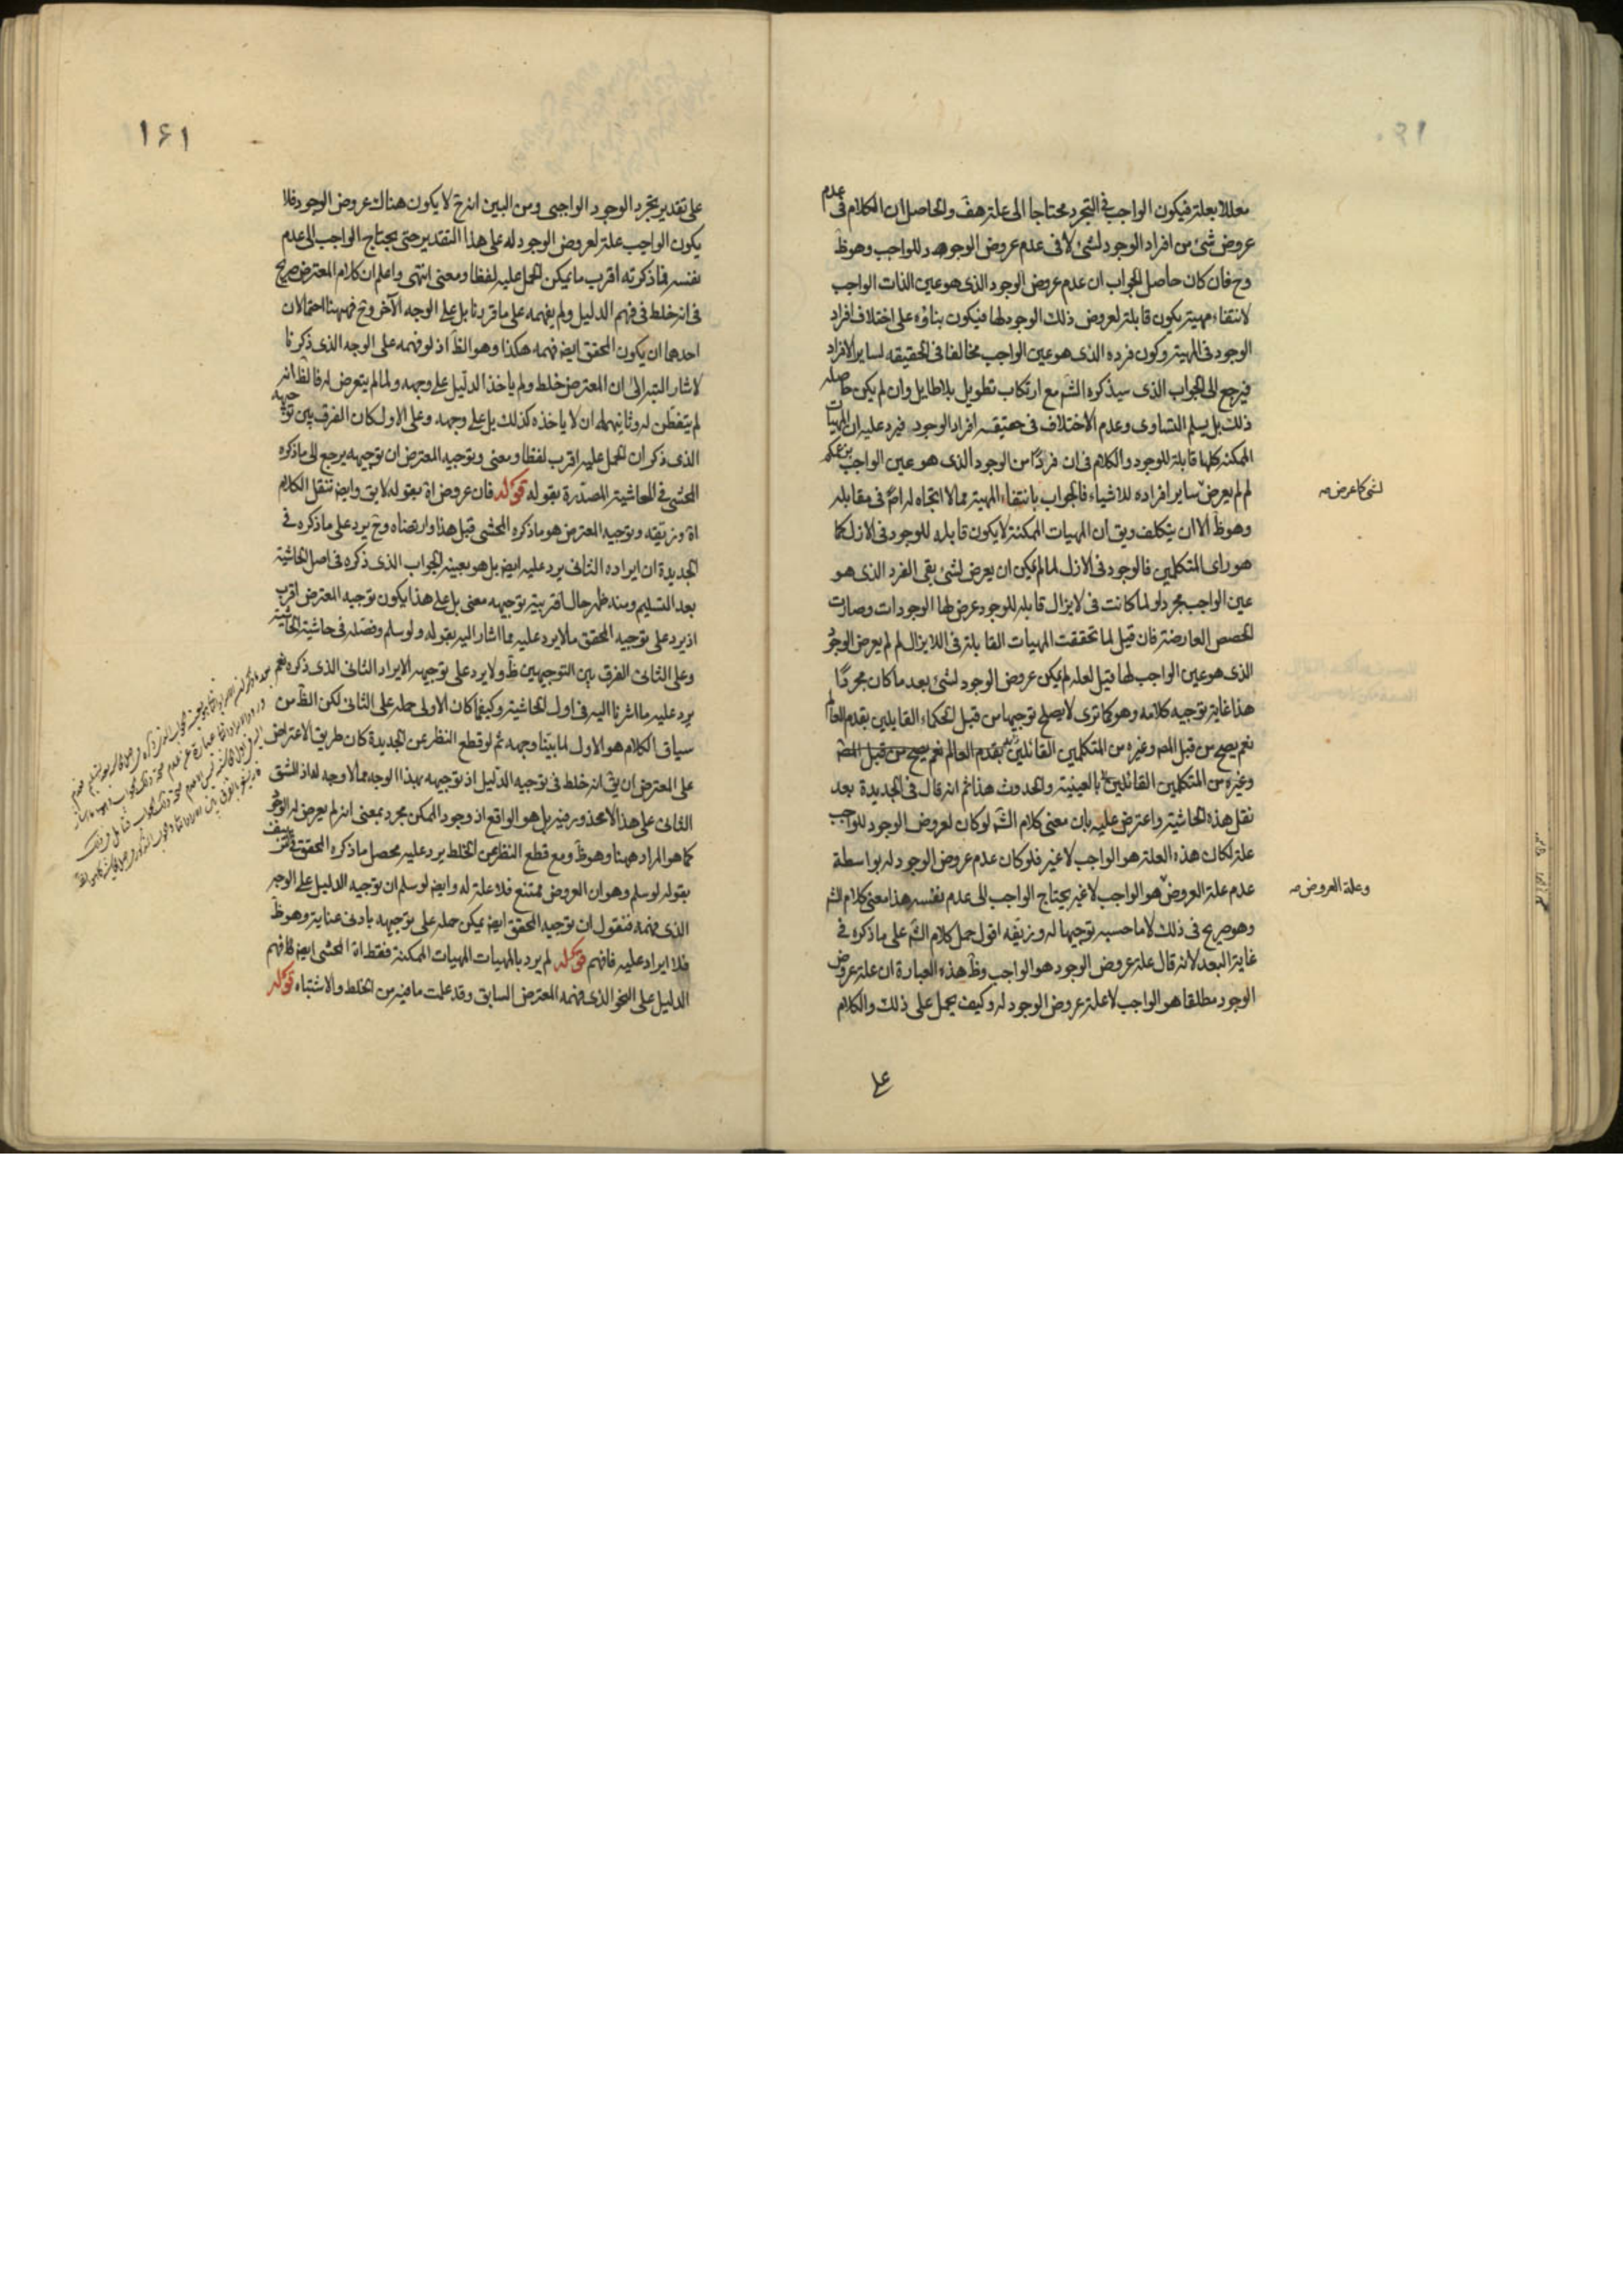 معللا بعلة فيكون الواجب في التجرد محتاجا الى علة هف والحاصل ان الكلام في عدم
عروض شئ من افراد الوجود لشئ لا في عدم عروض الوجود للواجب وهو ظ
وح فان كان حاصل الجواب ان عدم عروض الوجود الذي هو عين الذات الواجب
لانتفاء مهية يكون قابلة لعروض ذلك الوجود لها فيكون بناؤه على اختلاف افراد
الوجود في المهية وكون فرده الذي هو عين الواجب مخالفا في الحقيقه لساير الافراد
فيرجع الى الجواب الذي سيذكره الش مع ارتكاب تطويل بلا طايل وان لم يكن حاصله
ذلك بل يسلم التساوي وعدم الاختلاف في حقيقه افراد الوجود فيرد عليه ان المهيات
الممكنه كلها قابلة للوجود والكلام في ان فردا من الوجود الذي هو عين الواجب
لم لم يعرض ساير افراده للاشياء فالجواب بانتفاء المهية مما لا اتجاه له اصلا في مقابله
وهو ظ الا ان يتكلف ويق ان المهيات الممكنة لا يكون قابله للوجود في الازل كما
هو راى المتكلمين فالوجود في الازل لما لم يمكن ان يعرض لشئ بقى الفرد الذي هو
عين الواجب مجردا ولما كانت في لا يزال قابله للوجود عرض لها الوجودات وصارت
الحصص العارضة فان قيل لما تحققت المهيات القابلة في اللايزال لم لم يعرض الوجود
الذي هو عين الواجب لها قيل لعله لم يمكن عروض الوجود لشئ بعد ما كان مجردا
هذا غاية توجيه كلامه وهو كما ترى لا يصلح توجيها من قبل الحكماء القايلين بقدم العالم
نعم يصح من قبل المص وغيره من المتكلمين القائلين بقدم العالم نعم يصح من قبل المص
وغيره من المتكلمين القائلين بالعينية والحدوث هذا ثم انه قال في الجديدة بعد
نقل هذه الحاشية واعترض عليه بان معنى كلام الش لو كان لعروض الوجود للواجب
علة لكان هذه العلة هو الواجب لا غير فلو كان عدم عروض الوجود له بواسطة
عدم علة العروض هو الواجب لا غير يحتاج الواجب الى عدم نفسه هذا معنى كلام الش
وهو صريح في ذلك لا ما حسبه توجيها له وزيفه اقول حمل كلام الش على ما ذكره في
غاية البعد لانه قال علة عروض الوجود هو الواجب وظ هذه العبارة ان علة عروض
الوجود مطلقا هو الواجب لا علة عروض الوجود له وكيف يحمل على ذلك والكلام
على
لشئ كما عرض صه
وعلة العروض صه
۱۶۱
على تقدير تجرد الوجود الواجبى ومن البين انه ح لا يكون هناك عروض الوجود فلا
يكون الواجب علة لعروض الوجود له على هذا التقدير حتى يحتاج الواجب الى عدم
نفسه فما ذكرته اقرب ما يمكن الحمل عليه لفظا ومعنى انتهى واعلم ان كلام المعترض صريح
في انه خلط في فهم الدليل ولم يفهمه على ما قررنا بل على الوجه الآخر وح فههنا احتمالان
احدهما ان يكون المحقق ايض فهمه هكذا وهو الظ اذ لو فهمه على الوجه الذي ذكرنا
لاشار البتة الى ان المعترض خلط ولم ياخذ الدليل على وجهه ولما لم يتعرض له فالظ انه
لم يتفطن له وثانيهما ان لا ياخذه كذلك بل على وجهه وعلى الاول كان الفرق بين توجيهه
الذي ذكر ان الحمل عليه اقرب لفظا ومعنى وتوجيه المعترض ان توجيهه يرجع الى ما ذكره
المحشى في الحاشية المصدرة بقوله قوله فان عروض اه بقوله لا يق وايض ننقل الكلام
اه وزيفه وتوجيه المعترض هو ما ذكره المحشى قبل هذا وارتضاه وح يرد على ما ذكره في
الجديدة ان ايراده الثاني يرد عليه ايض بل هو بعينه الجواب الذي ذكره في اصل الحاشية
بعد التسليم ومنه ظهر حال اقربية توجيهه معنى بل على هذا يكون توجيه المعترض اقرب
اذ يرد على توجيه المحقق ما لا يرد عليه مما اشار اليه بقوله ولو سلم وفصله في حاشية الحاشية
وعلى الثاني الفرق بين التوجيهين ظ ولا يرد على توجيهه الايراد الثاني الذي ذكره نعم
يرد عليه ما اشرنا اليه في اول الحاشية وكيفما كان الاولى حمله على الثاني لكن الظ من
سياق الكلام هو الاول لما بينا وجهه ثم لو قطع النظر عن الجديدة كان طريق الاعتراض
على المعترض ان يق انه خلط في توجيه الدليل اذ توجيهه بهذا الوجه مما لا وجه له اذ الشق
الثاني على هذا لا محذور فيه بل هو الواقع اذ وجود الممكن مجرد بمعنى انه لم يعرض له الوجود
كما هو المراد ههنا وهو ظ ومع قطع النظر عن الخلط يرد عليه محصل ما ذكره المحقق في
بقوله لو سلم وهو ان العروض ممتنع فلا علة له وايض لو سلم ان توجيه الدليل على الوجه
الذي فهمه فنقول ان توجيه المحقق ايض يمكن حمله على توجيهه بادنى عناية وهو ظ
فلا ايراد عليه فافهم قوله لم يرد بالمهيات المهيات الممكنة فقط اه المحشى ايض فافهم
الدليل على النحو الذي فهمه المعترض السابق وقد علمت ما فيه من الخلط والاشتباه قوله